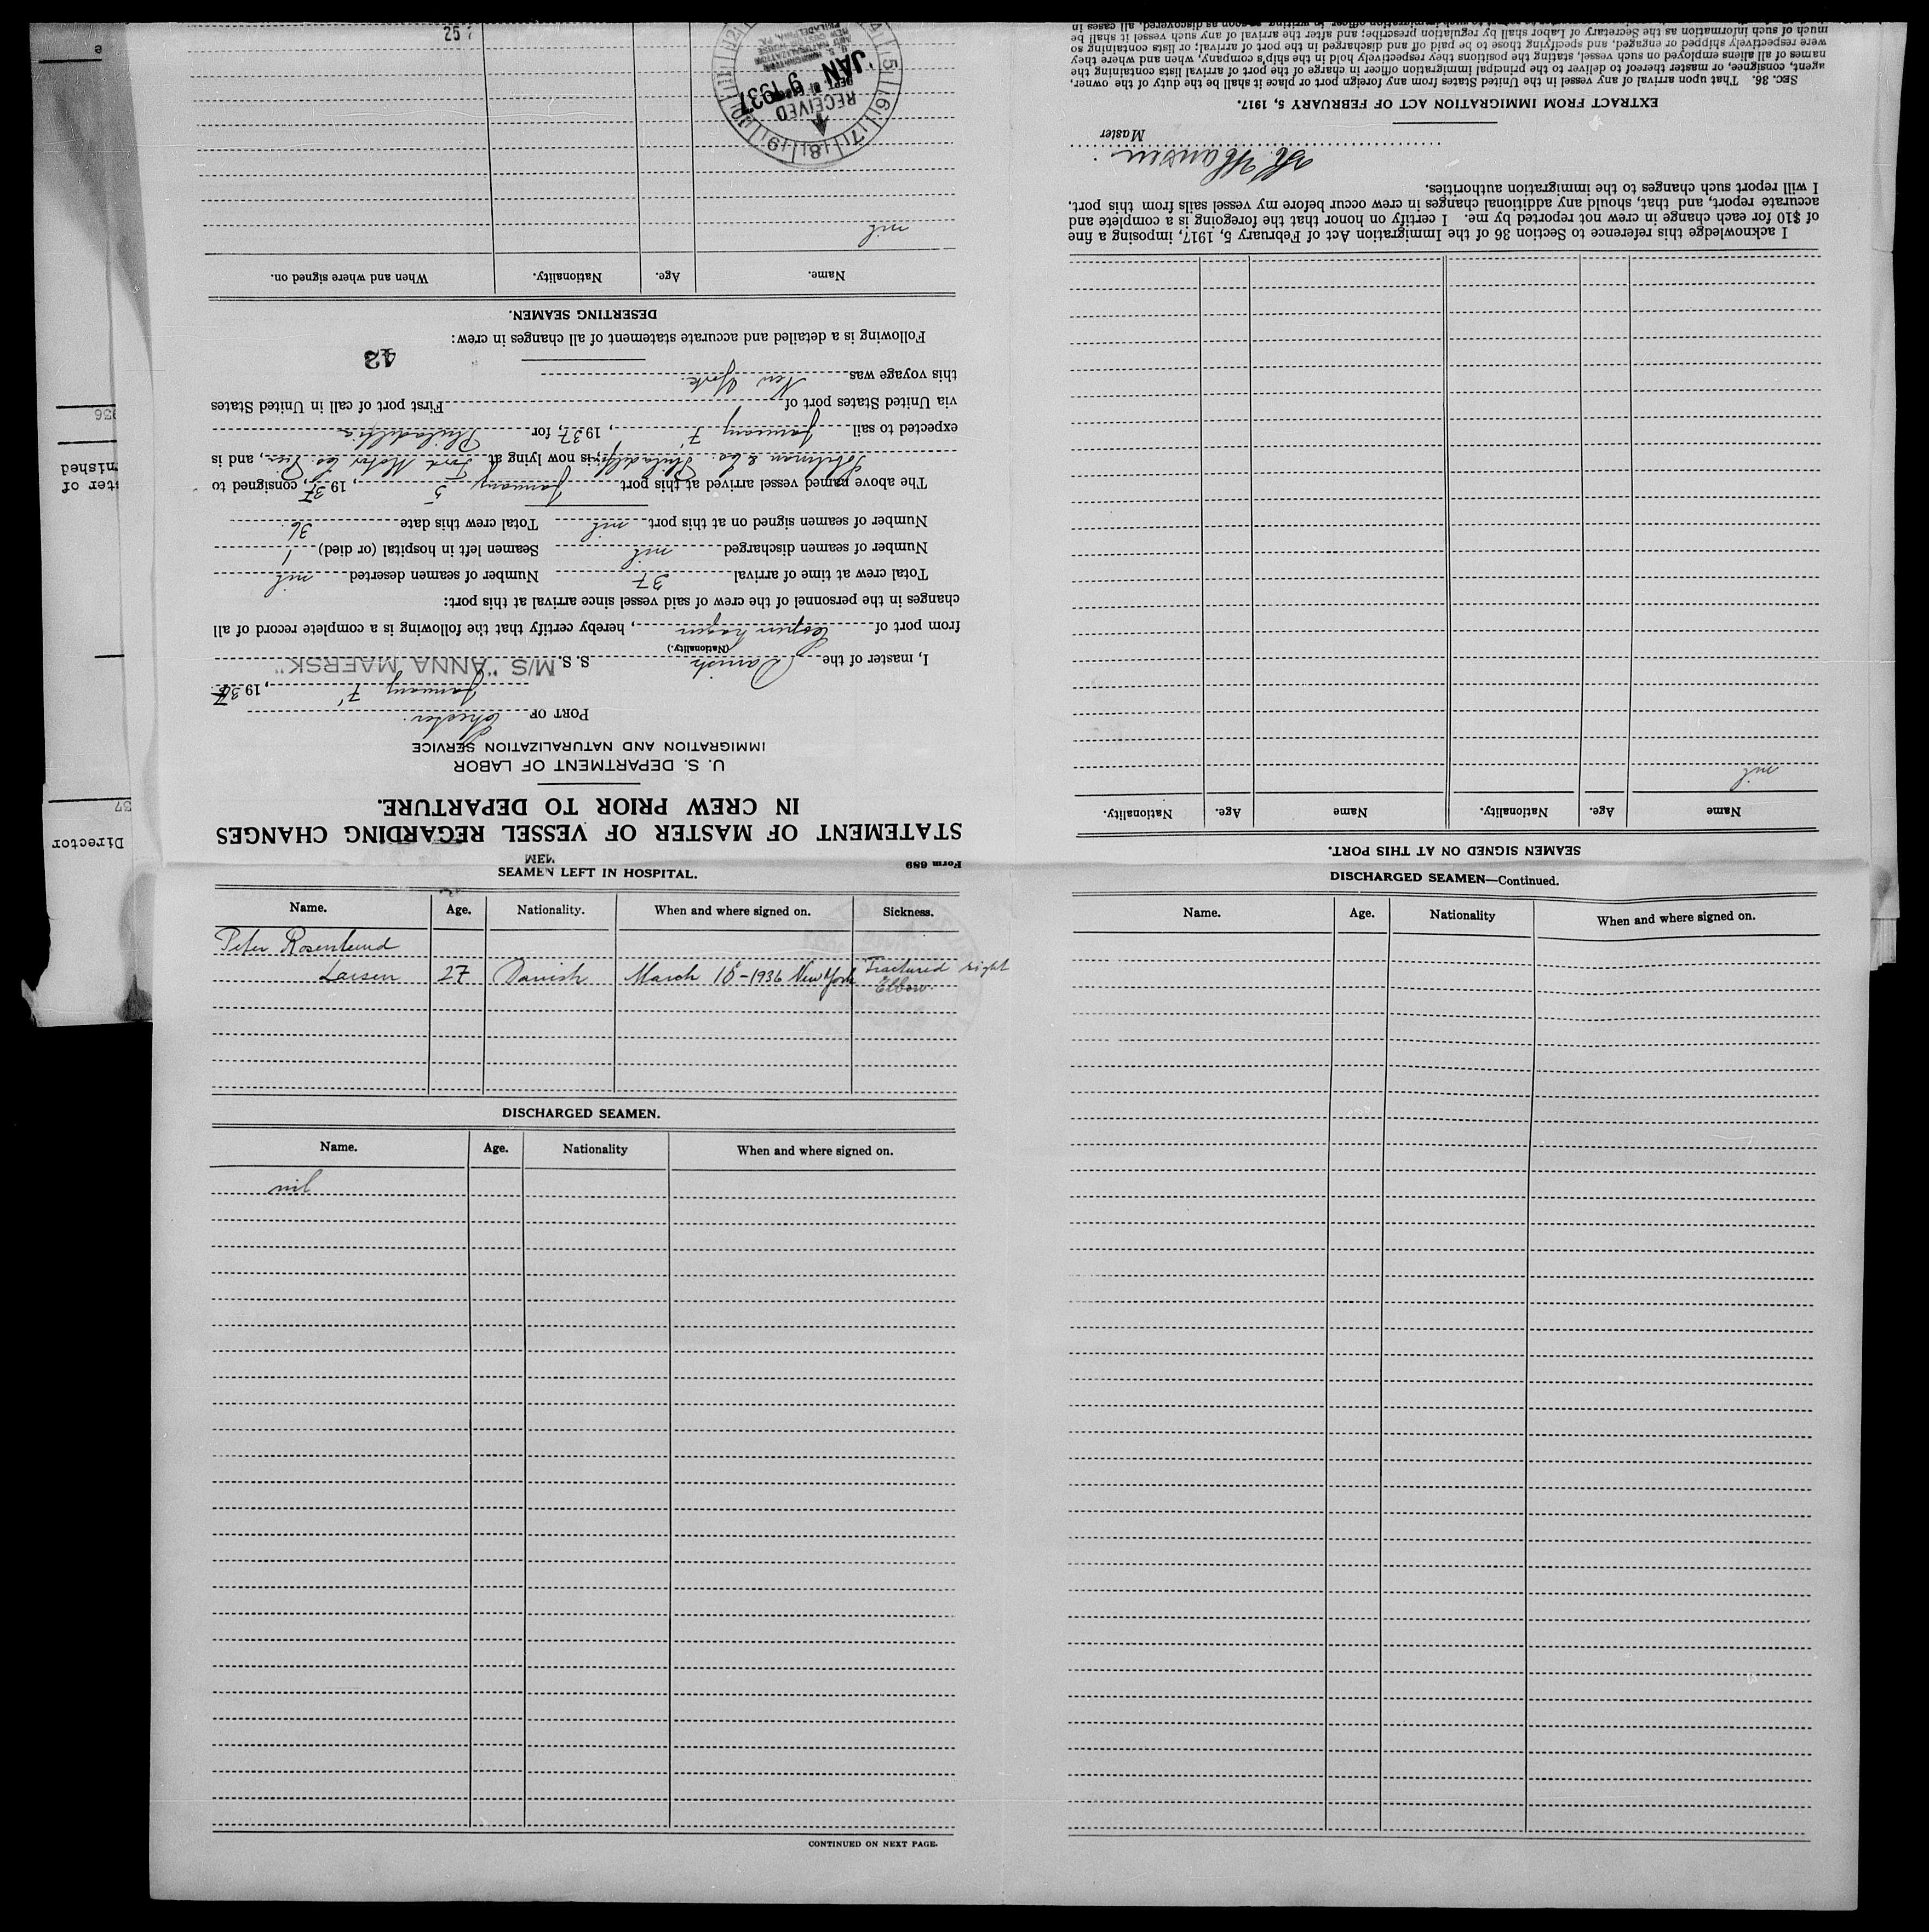 Form 689
STATEMENT OF MASTER OF VESSEL REGARDING CHANGES
IN CREW PRIOR TO DEPARTURE.
U. S. DEPARTMENT OF LABOR
IMMIGRATION AND NATURALIZATION SERVICE
PORT OF Chester.
January 7', 1937
I, master of the Danish S. S. M/S "ANNA MAERSK"
(Nationality.)
from port of Copenhagen, hereby certify that the following is a complete record of all
changes in the personnel of the crew of said vessel since arrival at this port:
Total crew at time of arrival 37 Number of seamen deserted nil
Number of seamen discharged nil Seamen left in hospital (or died) 1
Number of seamen signed on at this port nil Total crew this date 36.
The above named vessel arrived at this port January 5, 1937, consigned to
& Co. Philadelphia, is now lying at Ford Motor Co Pier, and is
expected to sail January 7', 1937, for Philadelphia
via United States port of First port of call in United States
this voyage was New York.
42
Following is a detailed and accurate statement of all changes in crew:
DESERTING SEAMEN.
Name. Age. Nationality. When and where signed on.
nil
RECEIVED
JAN 9 1937
U. S.
IMMIGRATION
AND NATURALIZATION
NEW CUSTOM HOUSE
PHILADELPHIA, PA.
4 5 6 7 8 9 10 11 12
25
SEAMEN LEFT IN HOSPITAL.
Name. Age. Nationality. When and where signed on. Sickness.
Peter Rosenlund
Larsen 27 Danish March 18-1936 New York Fractured right
Elbow.
DISCHARGED SEAMEN.
Name. Age. Nationality When and where signed on.
nil
CONTINUED ON NEXT PAGE.
DISCHARGED SEAMEN—Continued.
Name. Age. Nationality When and where signed on.
SEAMEN SIGNED ON AT THIS PORT.
Name Age. Nationality. Name Age. Nationality.
nil
I acknowledge this reference to Section 36 of the Immigration Act of February 5, 1917, imposing a fine
of $10 for each change in crew not reported by me. I certify on honor that the foregoing is a complete and
accurate report, and that, should any additional changes in crew occur before my vessel sails from this port,
I will report such changes to the immigration authorities.
Hansen
Master
EXTRACT FROM IMMIGRATION ACT OF FEBRUARY 5, 1917.
SEC. 36. That upon arrival of any vessel in the United States from any foreign port or place it shall be the duty of the owner,
agent, consignee, or master thereof to deliver to the principal immigration officer in charge of the port of arrival lists containing the
names of all aliens employed on such vessel, stating the positions they respectively hold in the ship's company, when and where they
were respectively shipped or engaged, and specifying those to be paid off and discharged in the port of arrival; or lists containing so
much of such information as the Secretary of Labor shall by regulation prescribe; and after the arrival of any such vessel it shall be
Director
37
ster of
nished
936
e